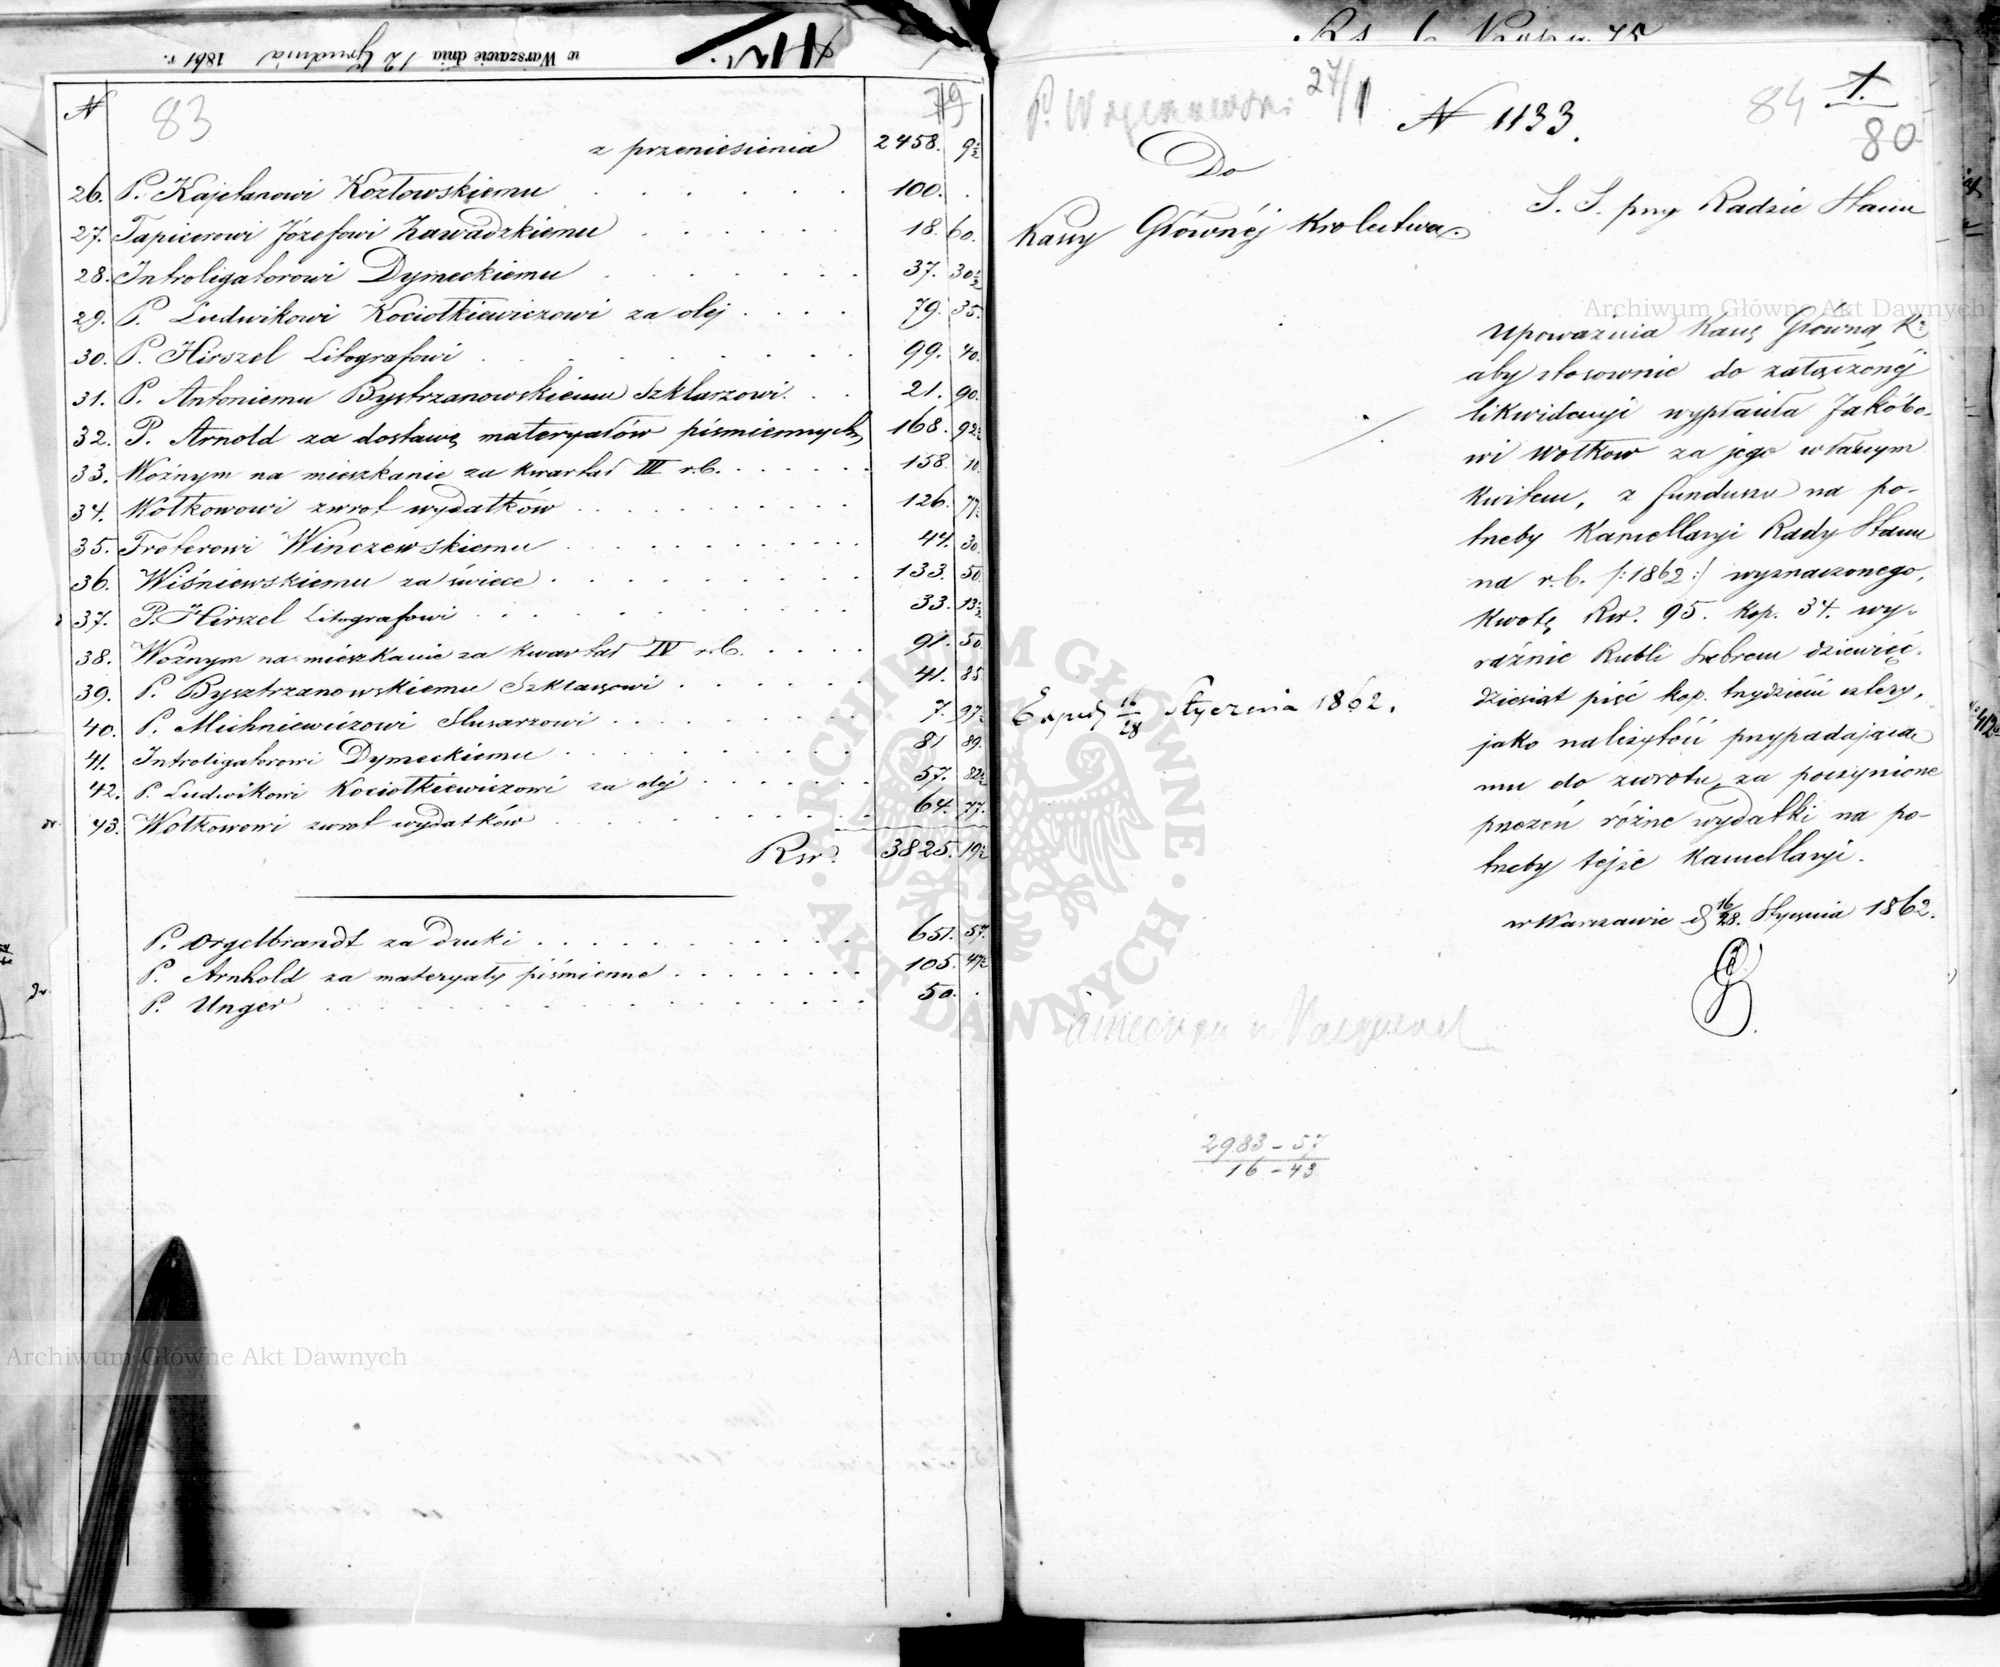 w Warszawie dnia 12 Grudnia 1861 r.
N
83
79
z przeniesienia 2458. 9½
26. P. Kajetanowi Kozłowskiemu 100. .
27. Tapicerowi Józefowi Zawadzkiemu 18. 60.
28. Introligatorowi Dymeckiemu 37. 30½
29. P. Ludwikowi Kociołkiewiczowi za olej 79. 35.
30. P. Hirszel Litografowi 99. 40.
31. P. Antoniemu Bystrzanowskiemu Szklarzowi 21. 90.
32. P. Arnold za dostawę materyałów piśmiennych 168. 92½
33. Woźnym na mieszkanie za kwartał III r.b. 158. 10.
34. Wołkowowi zwrot wydatków 126. 77½
35. Froterowi Winczewskiemu 44. 30.
36. Wiśniewskiemu za świece 133. 50.
37. P. Hirszel Litografowi 33. 13½
38. Woźnym na mieszkanie za kwartał IV r.b. 91. 50.
39. P. Bysztrzanowskiemu Szklarzowi 41. 85.
40. P. Michniewiczowi Slusarzowi 7. 97½
41. Introligatorowi Dymeckiemu 81 89.
42. P. Ludwikowi Kociołkiewiczowi za olej 57. 82½
43. Wołkowowi zwrot wydatków 64. 77.
Rsr. 3825. 19½
P. Orgelbrandt za druki 651. 57.
P. Arnhold za materyały piśmienne 105. 47½
P. Unger 50. .
27/1
N 1133.
84
1.
80
Do
Kassy Głównéj Królestwa.
S. S. przy Radzie Stanu
Upoważnia Kassę Główną K.
aby stosownie do załączonéj
likwidacyi wypłaciła Jakóbo-
wi Wołkow za jego własnym
kwitem, z funduszu na po-
trzeby Kancellaryi Rady Stanu
na r.b. /:1862:/ wyznaczonego,
kwotę Rsr. 95. kop. 34. wy-
raźnie Rubli Srebrem dziewięć-
dziesiąt pięć kop. trzydzieści cztery,
jako należytość przypadającą
mu do zwrotu, za poczynione
przezeń różne wydatki na po-
trzeby tejże Kancellaryi.
w Warszawie d. 16/28. Stycznia 1862.
Exped. 16/28 Stycznia 1862.
2983 - 57
16 - 43
Archiwum Główne Akt Dawnych
Archiwum Główne Akt Dawnych
ARCHIWUM GŁÓWNE · AKT DAWNYCH ·